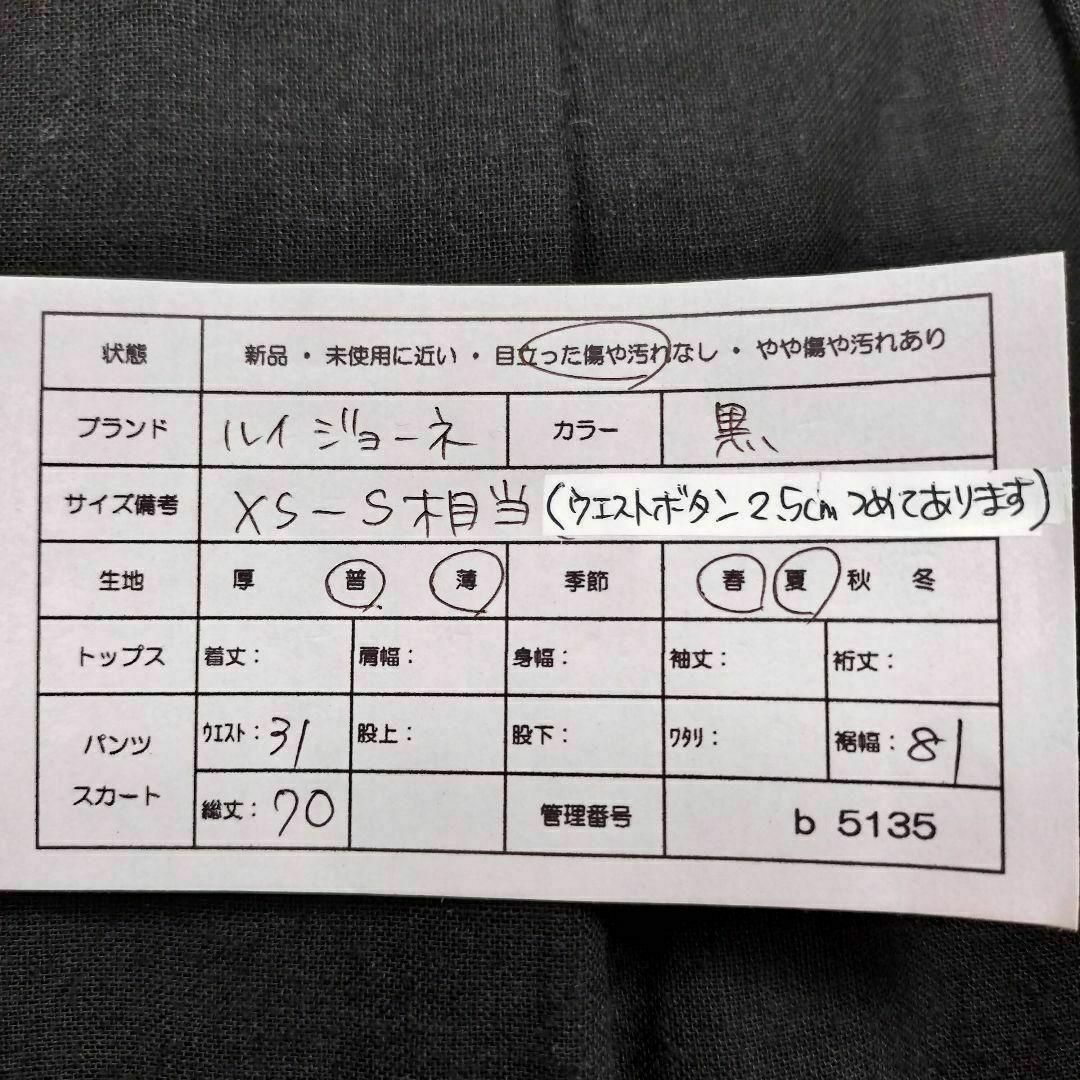 状態 新品・未使用に近い・目立った傷や汚れなし・やや傷や汚れあり
ブランド ルイジョーネ カラー 黒
サイズ備考 XS-S相当(ウエストボタン2.5cmつめてあります)
生地 厚 普 薄 季節 春 夏 秋 冬
トップス 着丈: 肩幅: 身幅: 袖丈: 裄丈:
パンツ スカート ウエスト:31 股上: 股下: ワタリ: 裾幅:81
総丈:70 管理番号 b 5135